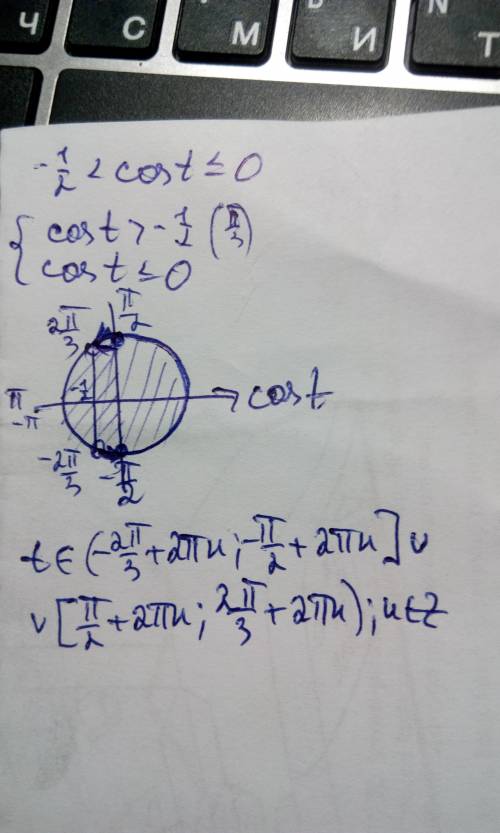 Ч С М И Т
-1/2 < cost ≤ 0
{ cost > -1/2 (π/3)
cost ≤ 0
2π/3 π/2
π -1/2 cost
-π
-2π/3 -π/2
t ∈ (-2π/3 + 2πn ; -π/2 + 2πn] ∪
∪ [π/2 + 2πn ; 2π/3 + 2πn) ; n ∈ Z